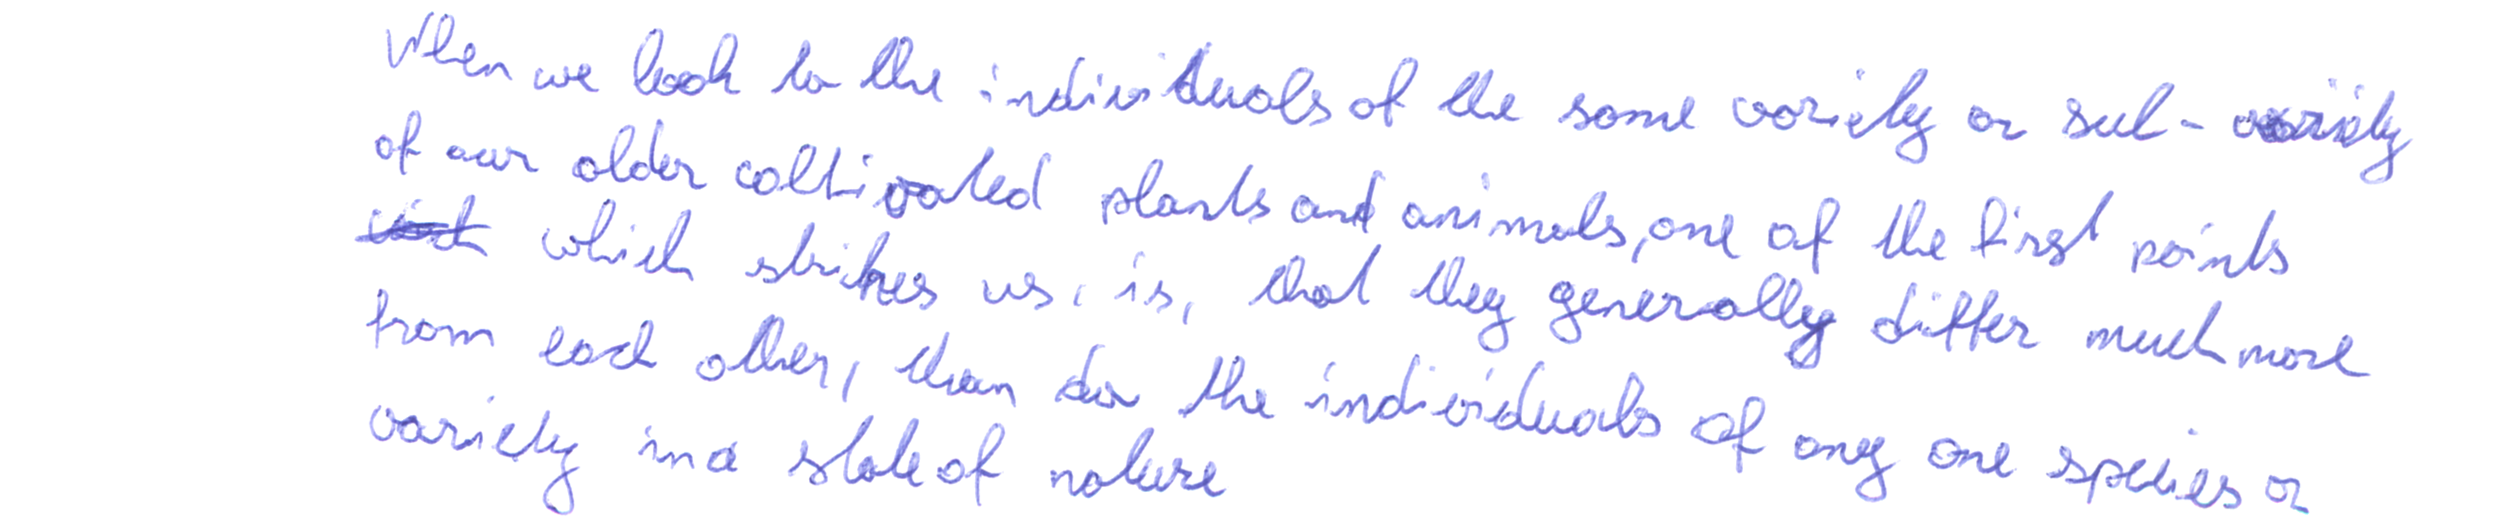 When we look to the individuals of the same variety or sub-variety
of our older cultivated plants and animals, one of the first points
which strikes us, is, that they generally differ much more
from each other, than do the individuals of any one species or
variety in a state of nature